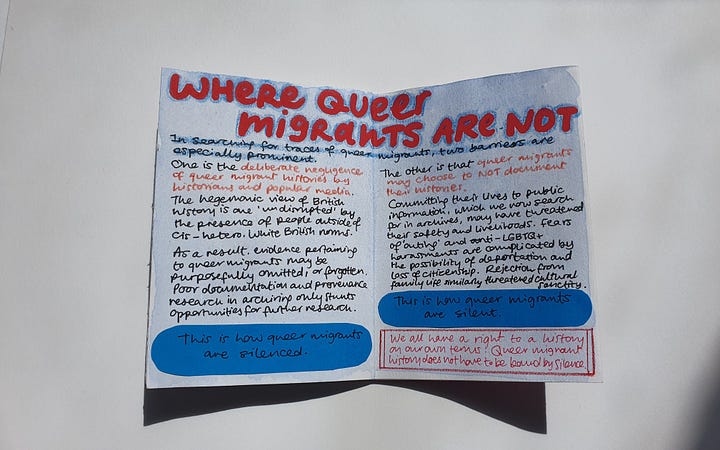 WHERE QUEER
MIGRANTS ARE NOT
In searching for traces of queer migrants, two barriers are
especially prominent.
One is the deliberate negligence
of queer migrant histories by
historians and popular media.
The hegemonic view of British
history is one 'undisrupted' by
the presence of people outside of
cis-hetero. White British norms.
As a result, evidence pertaining
to queer migrants may be
purposefully omitted, or forgotten.
Poor documentation and provenance
research in archiving only stunts
opportunities for further research.
This is how queer migrants
are silenced.
The other is that queer migrants
may choose to NOT document
their histories.
Committing their lives to public
information, which we now search
for in archives, may have threatened
their safety and livelihoods. Fears
of 'outing' and anti-LGBTQ+
harassments are complicated by
the possibility of deportation and
loss of citizenship. Rejection from
family life similarly threatened cultural
sanctity.
This is how queer migrants
are silent.
We all have a right to a history
on our own terms! Queer migrant
history does not have to be bound by silence.